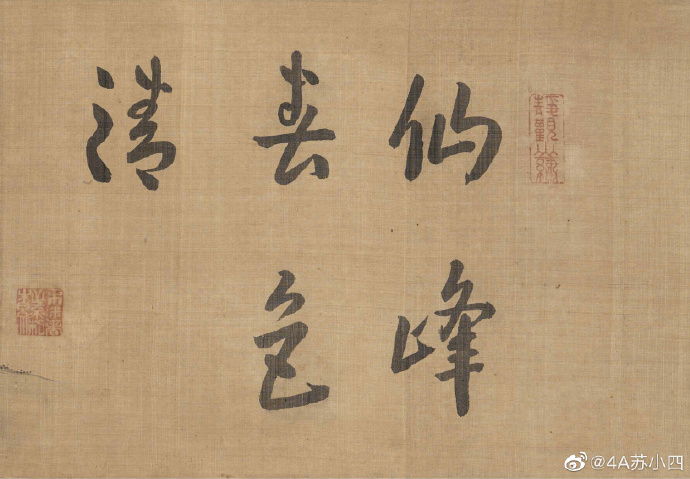 仙峰
春色
清
@4A苏小四